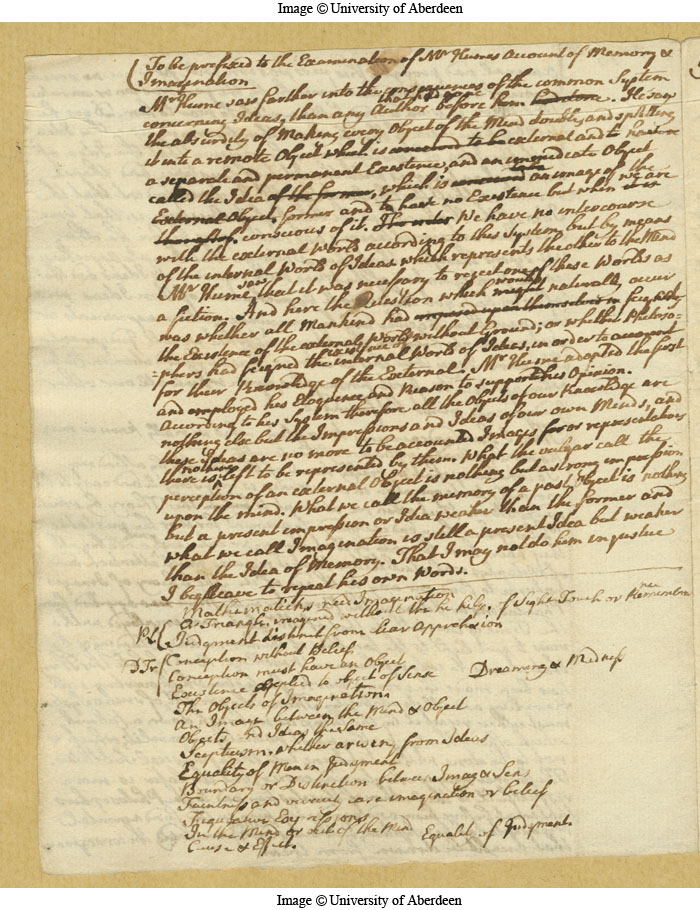 Image © University of Aberdeen
To be prefixed to the Examination of Mr Humes Account of Memory &
Imagination
Mr Hume saw farther into the consequences of the common System
concerning Ideas, than any Author before him. He saw
the absurdity of Making every Object of the Mind double, and splitting
it into a remote Object which is external and to have
a separate and permanent Existence, and an immediate Object
called the Idea of the former, which is an image of the
External Object. former and to have no Existence but when we are
conscious of it. The We have no intercourse
with the external World according to this System, but by means
of the internal World of Ideas which represents the other to the Mind
Mr Hume saw that it was necessary to reject one of these Worlds as
a fiction. And here the Question which would might naturally occur
was whether all Mankind had imposed upon themselves in feigning
the Existence of the external World without Ground; or whether Philoso-
=phers had feigned the internal World of Ideas, in order to account
for their Knowledge of the External. Mr Hume adopted the first
and employed his Eloquence and Reason to support his Opinion.
According to his System therefore all the Objects of our Knowledge are
nothing else but the Impressions and Ideas of our own Minds, and
these Ideas are no more to be accounted Images or representations
there is nothing left to be represented by them. What the vulgar call the
perception of an external Object is nothing but a strong impression
upon the mind. What we call the memory of a past Object is nothing
but a present impression or Idea weaker than the former and
what we call Imagination is still a present Idea but weaker
than the Idea of Memory. That I may not do him injustice
I beg leave to repeat his own Words.
Mathematicks need Imagination
A Triangle imagined without the help of Sight Touch or
Judgment distinct from bear Apprehsion
Conception without belief
Conception must have an Object
Existence applied to object of Sense Dreaming & Madness
The Objects of Imagination
An Image between the Mind & Object
Objects and Ideas the same
Scepticism whether arising from Ideas
Equality of Men in Judgment
Boundary or Distinction between Imag & Sens
Faintness and vivacity are imagination or belief
Figurative Expressions
In the Mind or out of the Mind Equality of Judgment
Cause & Effect.
Image © University of Aberdeen